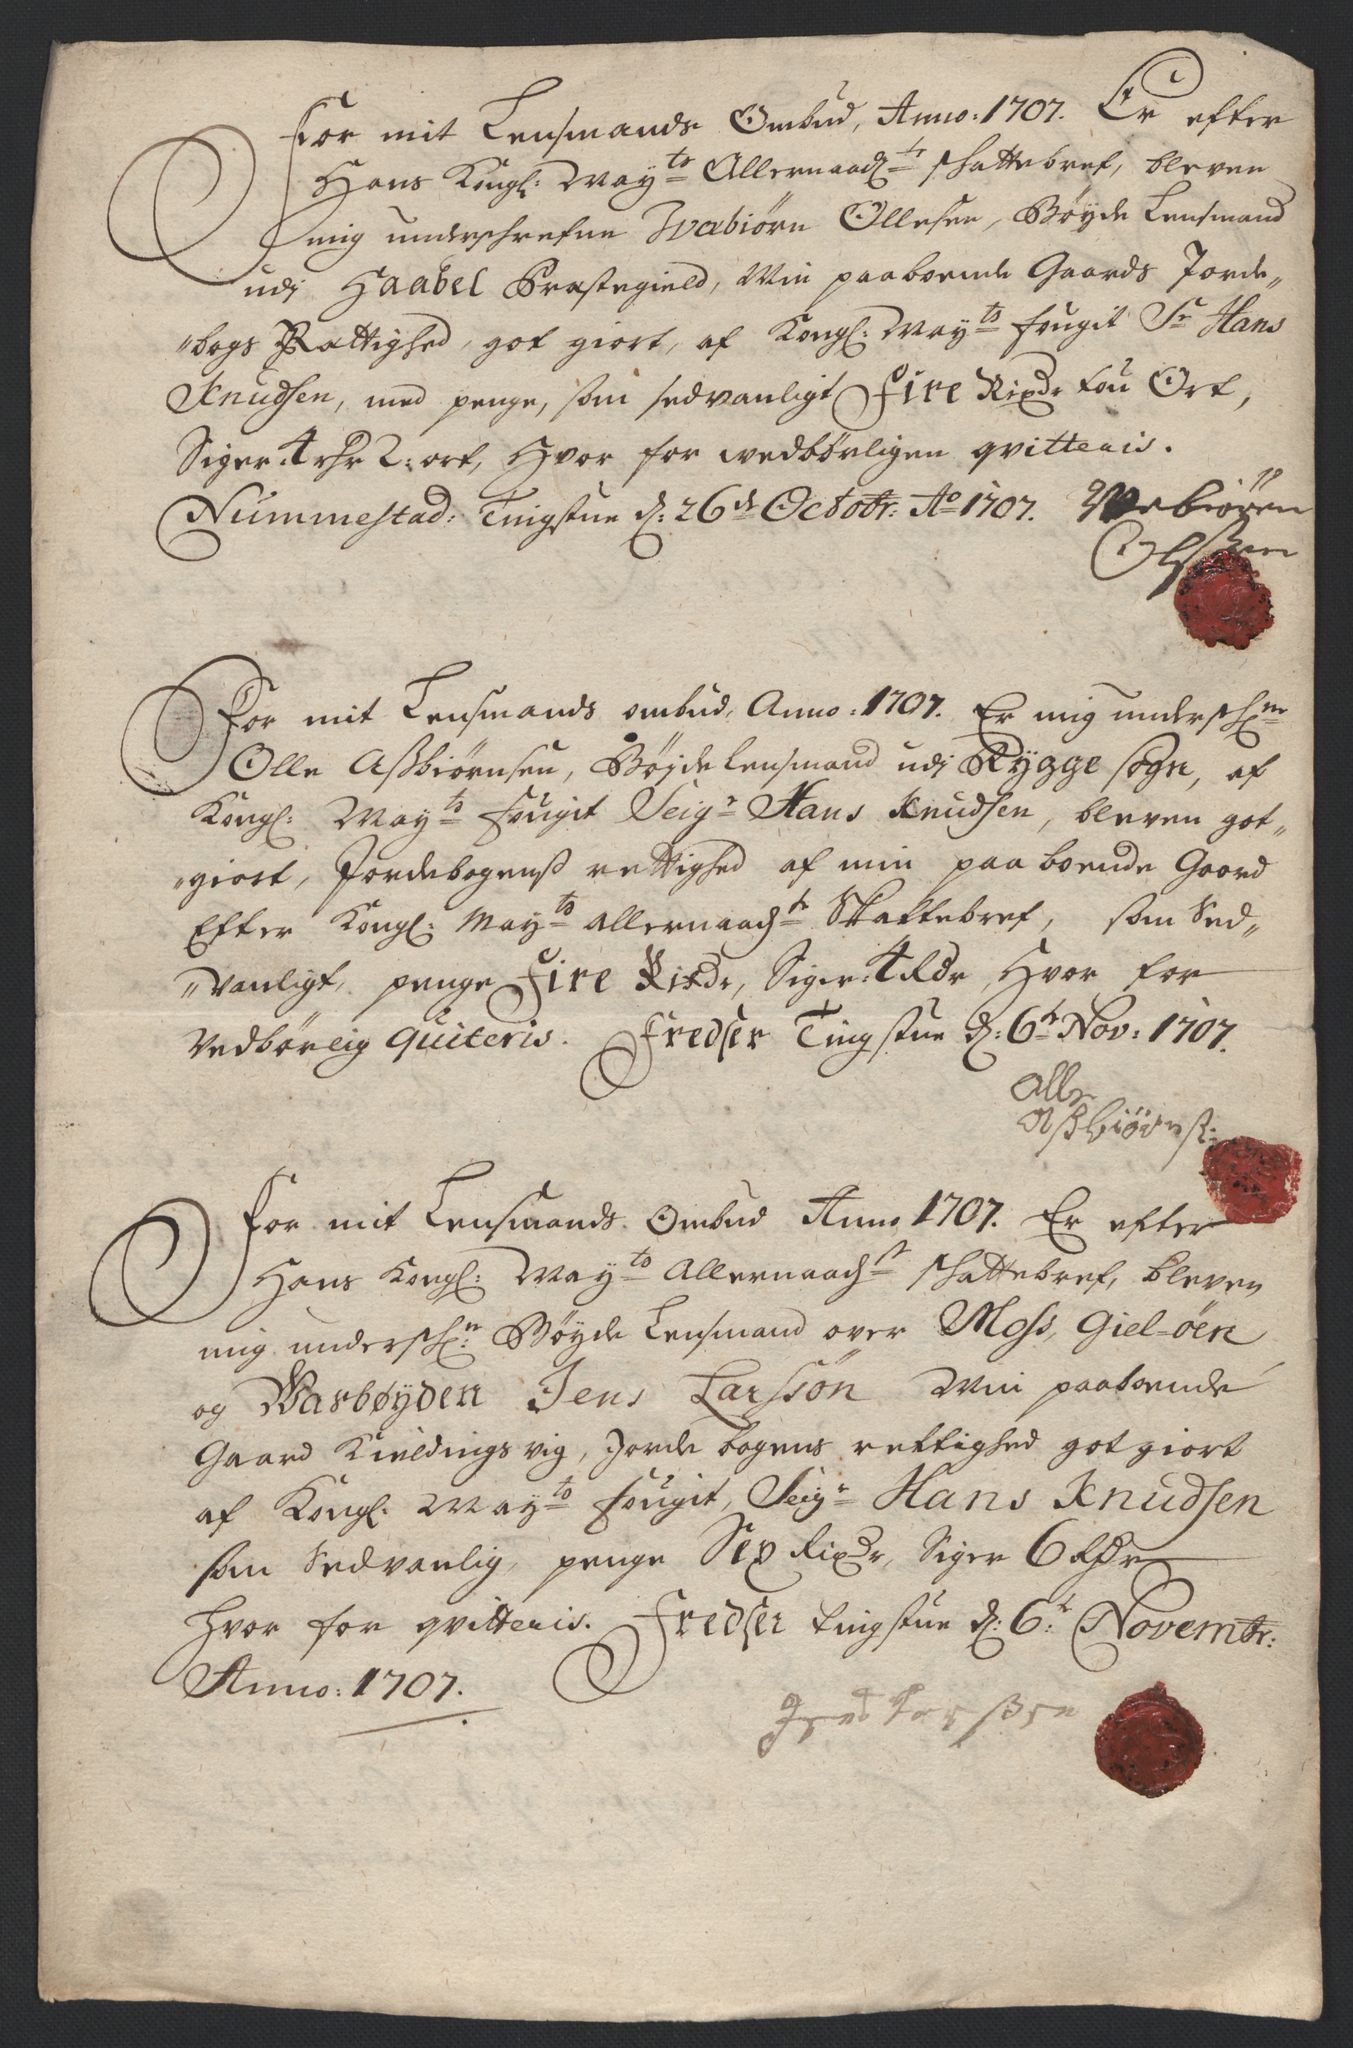 For mit Lensmands Ombud, Anno: 1707. Er efter
Hans Kongl: May:ts Allernaad:te skattebref, bleven
mig underschrefne Webiørn Ollesen, Bøyde Lensmand
udj Haabel Præstegield, Min paaboende Gaards Jorde„
„bogs Rættighed, got giort, af Kongl: May:ts fougit Sr Hans
Knudsen, med penge, som sedvanligt Fire Rixdr tou Ort,
Siger 4 rdr 2: ort, Hvor for wedbørligen qvitteris.
Nümmestad: Tingstue d: 26de Octobr: Ao 1707. Webiøren
Olssen
For mit Lensmands ombud, Anno: 1707. Er mig undersch:ne
Olle Assbiørnsen, Bøjde Lensmand udj Rygge sogn, af
Kongl: May:ts fougit Seigr Hans Knudsen, bleven got„
„giort, Jordebogenss rettighed af min paa boende Gaard
Efter Kongl: May:ts allernaad:te Skattebref, som Sed„
„vanligt, penge Fire Rixdr, Siger: 4 Rdr, Hvor for
Vedbørlig quiteris. Fredser Tingstue d: 6te Nov: 1707.
Olle
Assbiørns:
For mit Lensmands Ombud Anno 1707. Er efter
Hans Kongl: May:ts Allernaad:st skattebref, bleven
mig undersch:ne Bøyde Lensmand over Moss, Giel-øen
og Warbøyden Jens Larssøn Min paaboende
Gaard Kieldings vig, Jorde bogens rettighed got giort
af Kongl: May:ts fougit, Seigr Hans Knudsen
som Sedvanlig, penge Sex Rixdr, Siger 6 Rdr
Hvor for qvitteris. Fredser tingstue d: 6t: Novembr:
Anno: 1707.
Jens Larssen